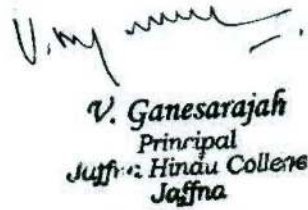 V. Ganesarajah
Principal
Jaffna Hindu College
Jaffna